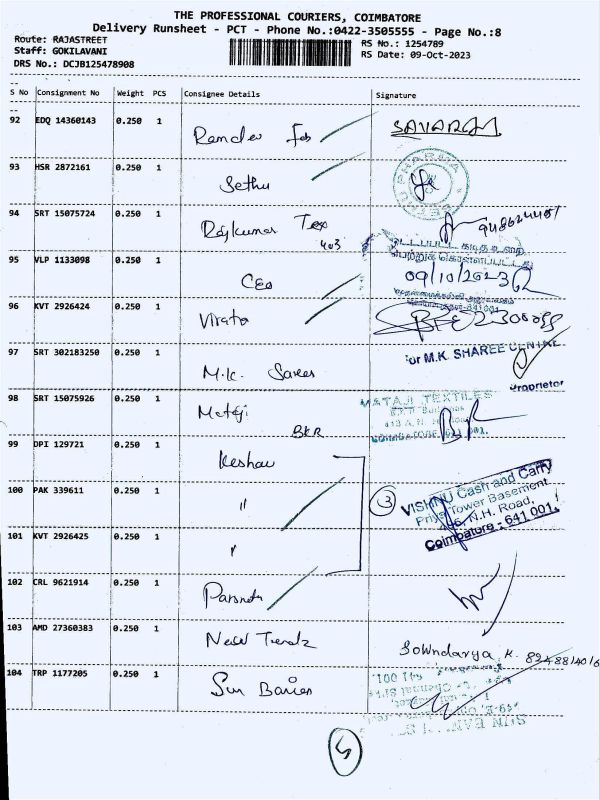 THE PROFESSIONAL COURIERS, COIMBATORE
Delivery Runsheet - PCT - Phone No.:0422-3505555 - Page No.:8
Route: RAJASTREET
Staff: GOKILAVANI
DRS No.: DCJB125478908
RS No.: 1254789
RS Date: 09-Oct-2023
S No Consignment No Weight PCS Consignee Details Signature
92 EDQ 14360143 0.250 1
93 HSR 2872161 0.250 1 Sethu
SETHU PHARMA
94 SRT 15075724 0.250 1 Rajkumar Tex
403
95 VLP 1133098 0.250 1 CEO
09/10/2023
96 KVT 2926424 0.250 1
97 SRT 302183250 0.250 1 M.K. Sarees
for M.K. SHAREE CENTRE
Proprietor
98 SRT 15075926 0.250 1 Mataji
MATAJI TEXTILES
COIMBATORE 641 001.
BKR
99 DPI 129721 0.250 1 Keshav
100 PAK 339611 0.250 1 "
3 VISHNU Cash and Carry
Priya Tower Basement
N.H. Road,
Coimbatore - 641 001.
101 KVT 2926425 0.250 1 "
102 CRL 9621914 0.250 1
103 AMD 27360383 0.250 1 New Trendz Sowndarya K.
104 TRP 1177205 0.250 1 Sun
5